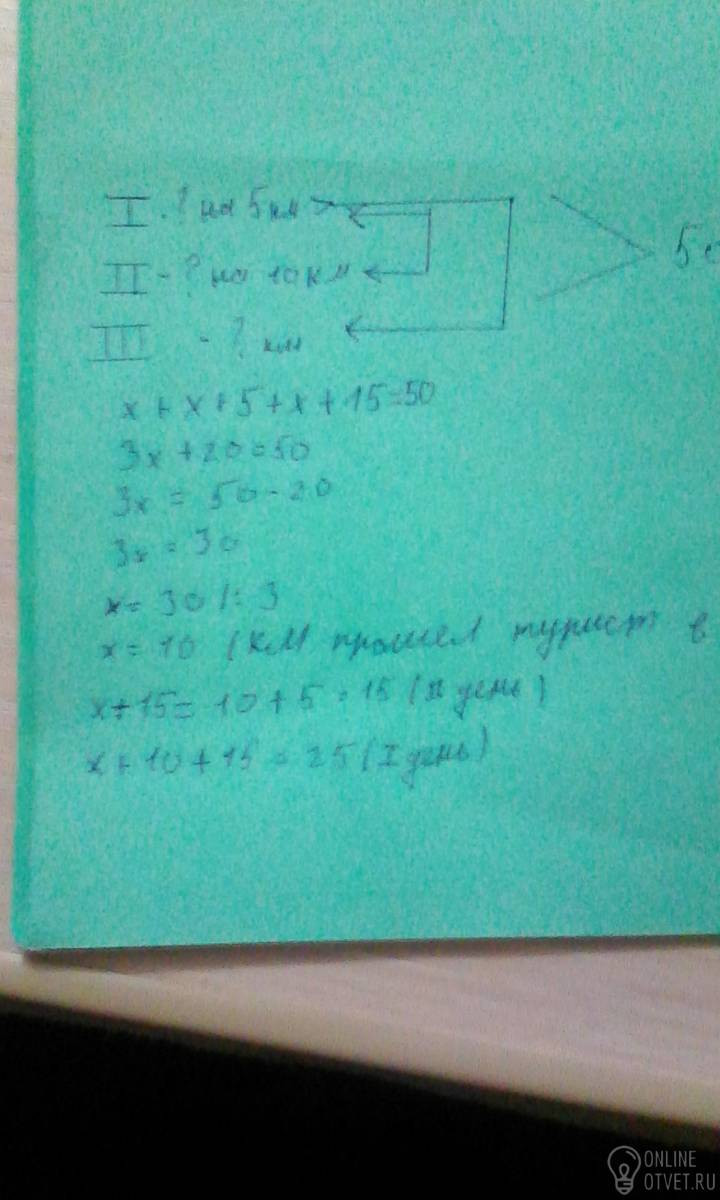 I - ? на 5 км
II - ? на 10 км
III - ? км
x + x + 5 + x + 15 = 50
3x + 20 = 50
3x = 50 - 20
3x = 30
x = 30 : 3
x = 10 (км прошел турист в
x + 15 = 10 + 5 = 15 (II день)
x + 10 + 15 = 25 (I день)
ONLINE
OTVET.RU